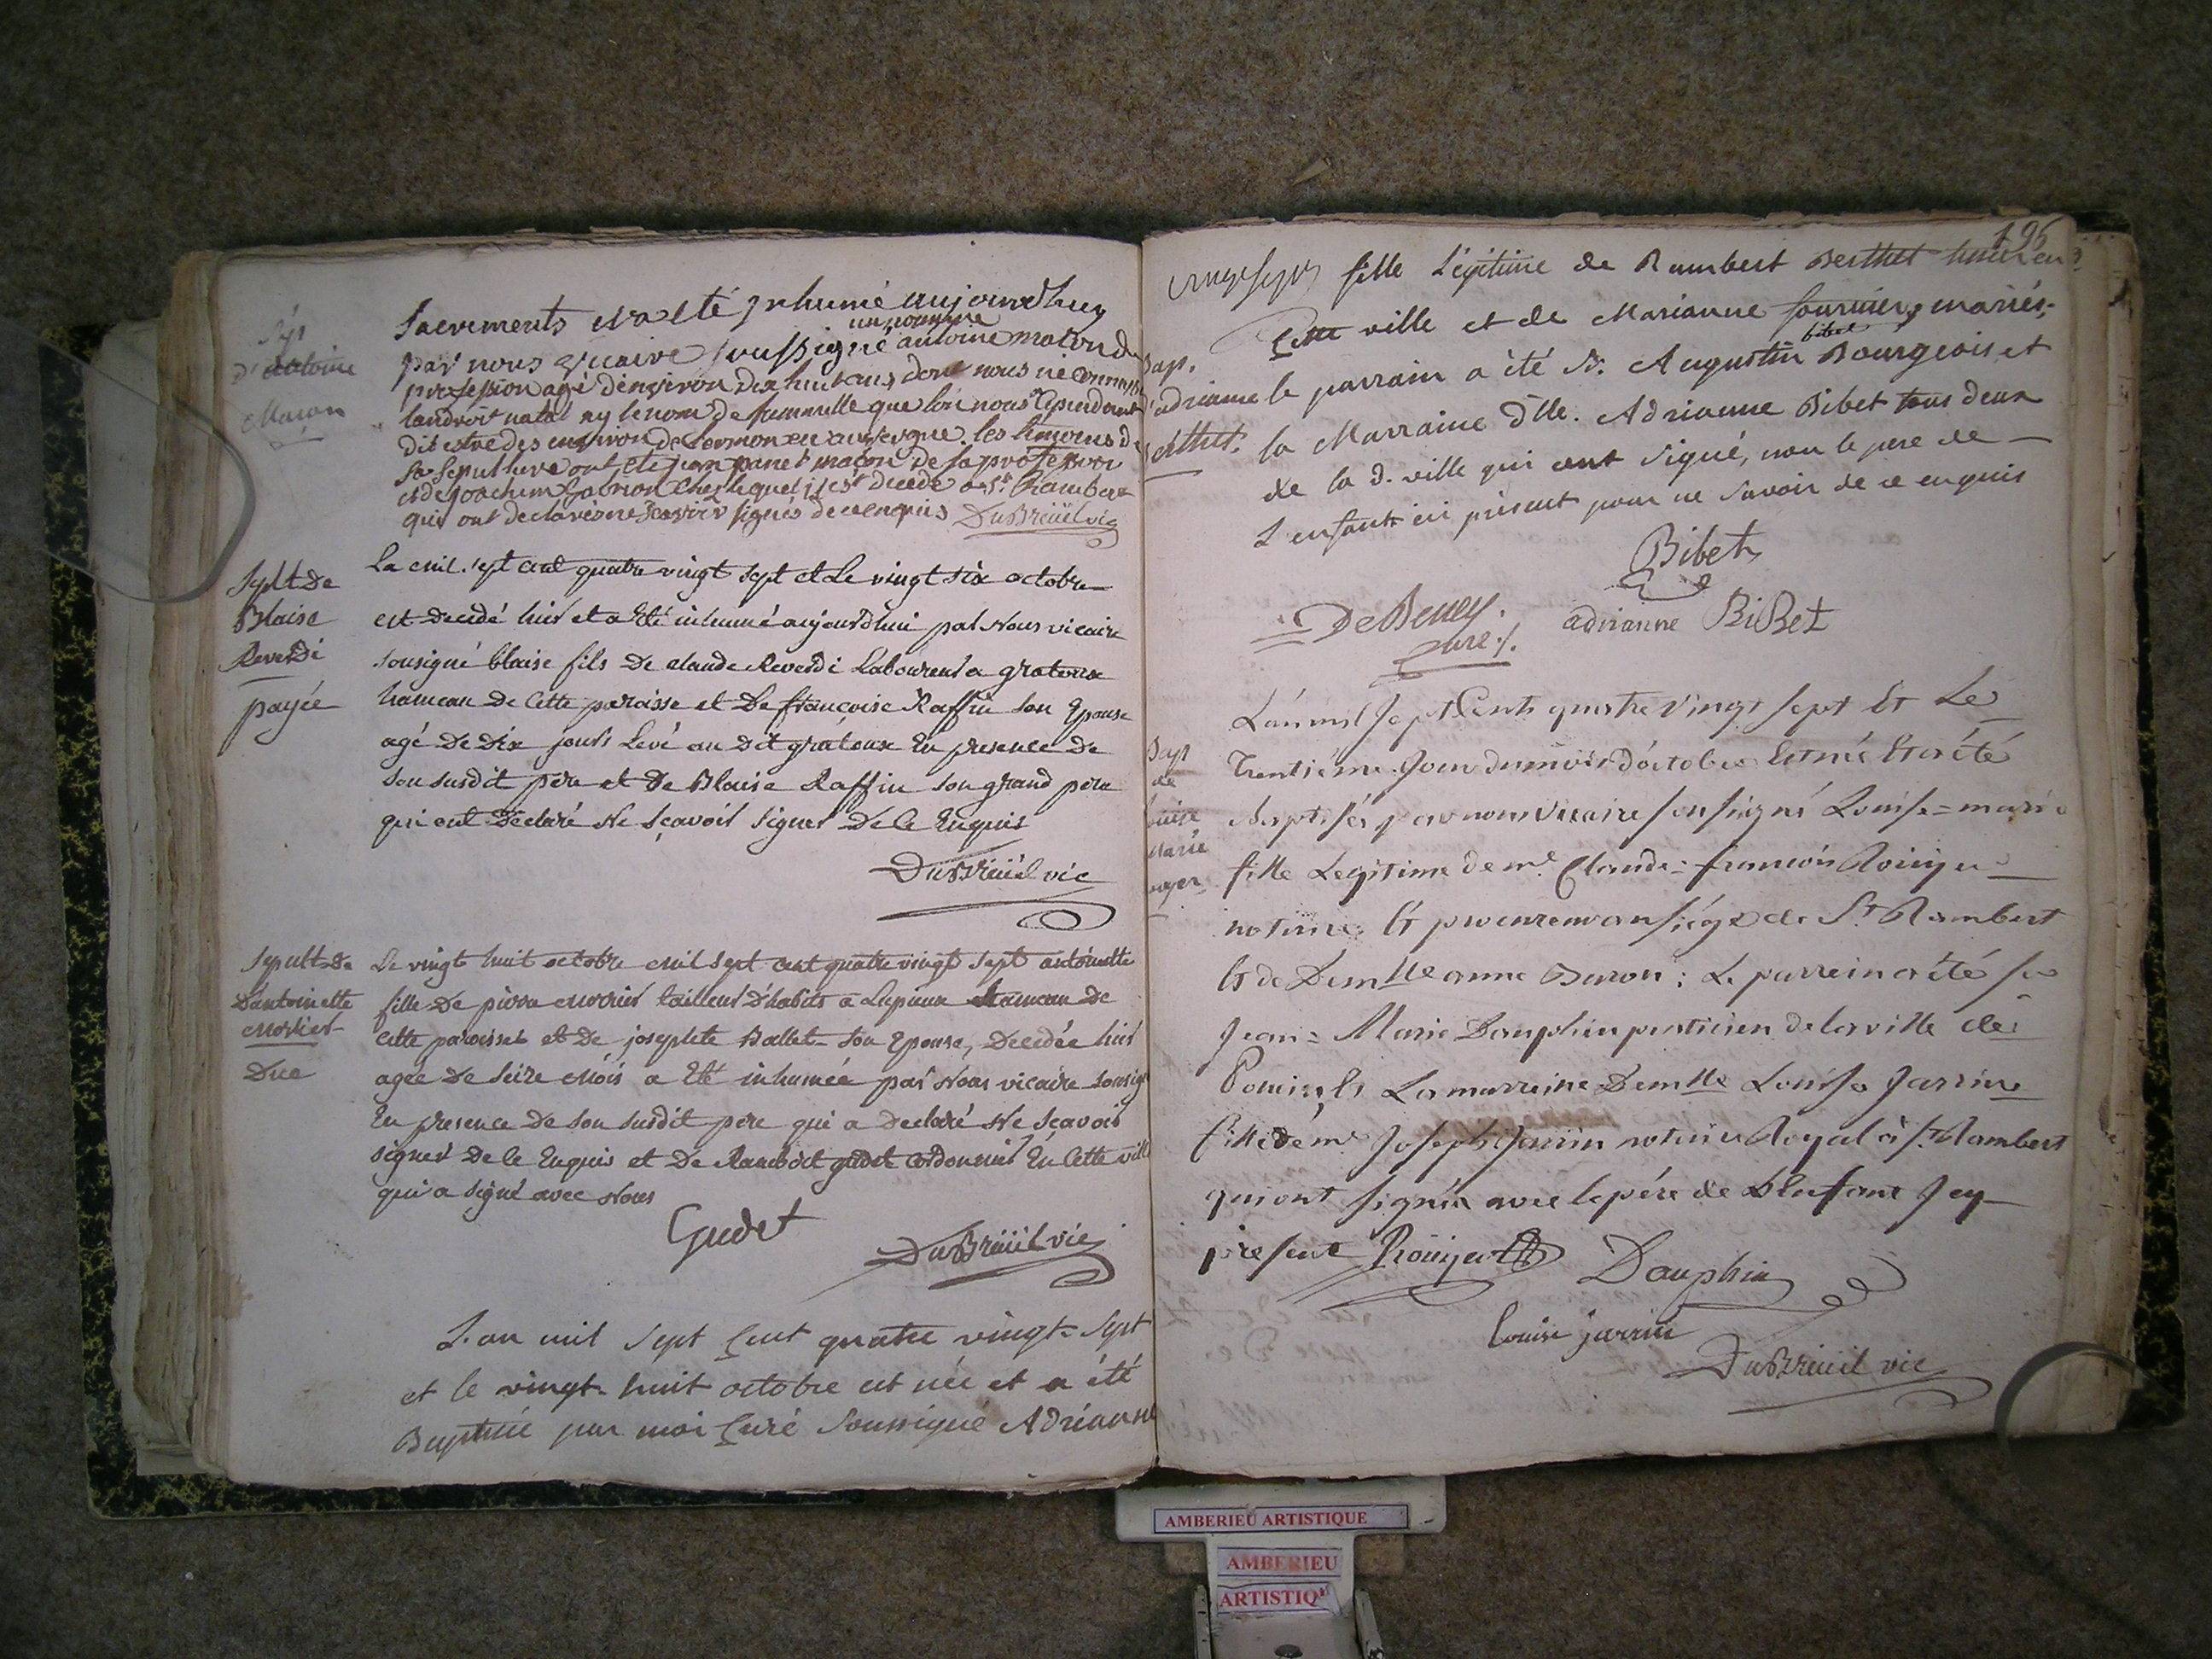 Sep
d'Antoine
Macon
Sacrements et a été Inhumé aujourdhuy
par nous vicaire soussigné un nommé antoine macon de
profession agé denviron dix huit ans dont nous ne
landroit natal ny le nom de fammille que lon nous Cependant
dit estre des environ de en auvergne. les temoins de
sa Sepulture ont été jean panet maçon de sa profession
et de joachim Gabrion chez lequel il est decedé a St. Rambert
qui ont declarés ne scavoir signés de ce enquis DuBreüil vic
Sept de
Blaise
Reverdi
payée
La mil sept cent quatre vingt sept et Le vingt six octobre
est decedé hier et a Eté inhumé aujourdhui par Nous vicaire
sousigné blaise fils de claude Reverdi Laboureur a gratoux
hameau de Cette paroisse et De françoise Raffin son Epouse
agé De Dix jours Levé au Dit gratoux En presence de
son susdit pere et De Blaise Raffin son grand pere
qui ont Declaré Ne Sçavoir signer De Ce Enquis
DuBreüil vic
Sepult de
Dantoinette
morier
Due
Le vingt huit octobre mil sept cent quatre vingt sept antoinette
fille De pierre morier tailleur D'habits a Lupieux hameau De
Cette paroisse et De josephte Ballet son Epouse, Decedée hier
agée De Seize mois a Eté inhumée par Nous vicaire sousigné
En presence de son susdit pere qui a declaré Ne Sçavoir
signer De Ce Enquis et De Rambert gudet cordonnier En Cette ville
qui a signé avec Nous
Gudet
DuBreüil vic
L'an mil sept cent quatre vingt-sept
et le vingt-huit octobre est née et a été
Baptisée par moi Curé Soussigné Adrianne
195
fille Légitime de Rambert Berthet
Cette ville et de Marianne fournier, mariés;
Bap.
d'adrianne
le parrain a été Sr. Augustin bibet Bourgeois et
erthet.
la Marraine dlle. Adrianne Bibet tous deux
de la d. ville qui ont signé, non le pere de
L'enfant ici présent pour ne savoir de ce enquis
Bibet
DeBeney
curé.
adrianne BiBet
Bap
de
Louise
Marie
L'an mil sept Cents quatre Vingt sept Et Le
Trentième Jour du mois d'octobre Est née Et a été
Baptisée par nous Vicaire sousigné Louise = marie
fille Legitime de me. Claude = françois Roüyer
notaire Et procureur au siége de St. Rambert
Et de Demlle anne Baron; Le parrein a été sr
Jean = Marie Dauphin praticien de la ville de
Poncin, Et La marreine Demlle Louise Jarrin
fille de me. Joseph Jarrin notaire Royal à St. Rambert
qui ont signés avec le pére de L'enfant Jcy
présent Roüyer Dauphin
Louise jarrin
DuBreüil vic
AMBERIEU ARTISTIQUE
AMBERIEU
ARTISTIQ